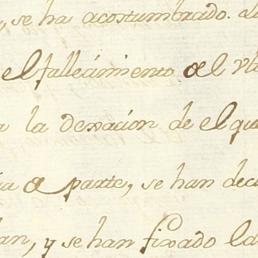 , se ha acostumbrado. al
el fallecimiento del
a la donacion de el qu
a parte, se han dec
an, y se han fixado la